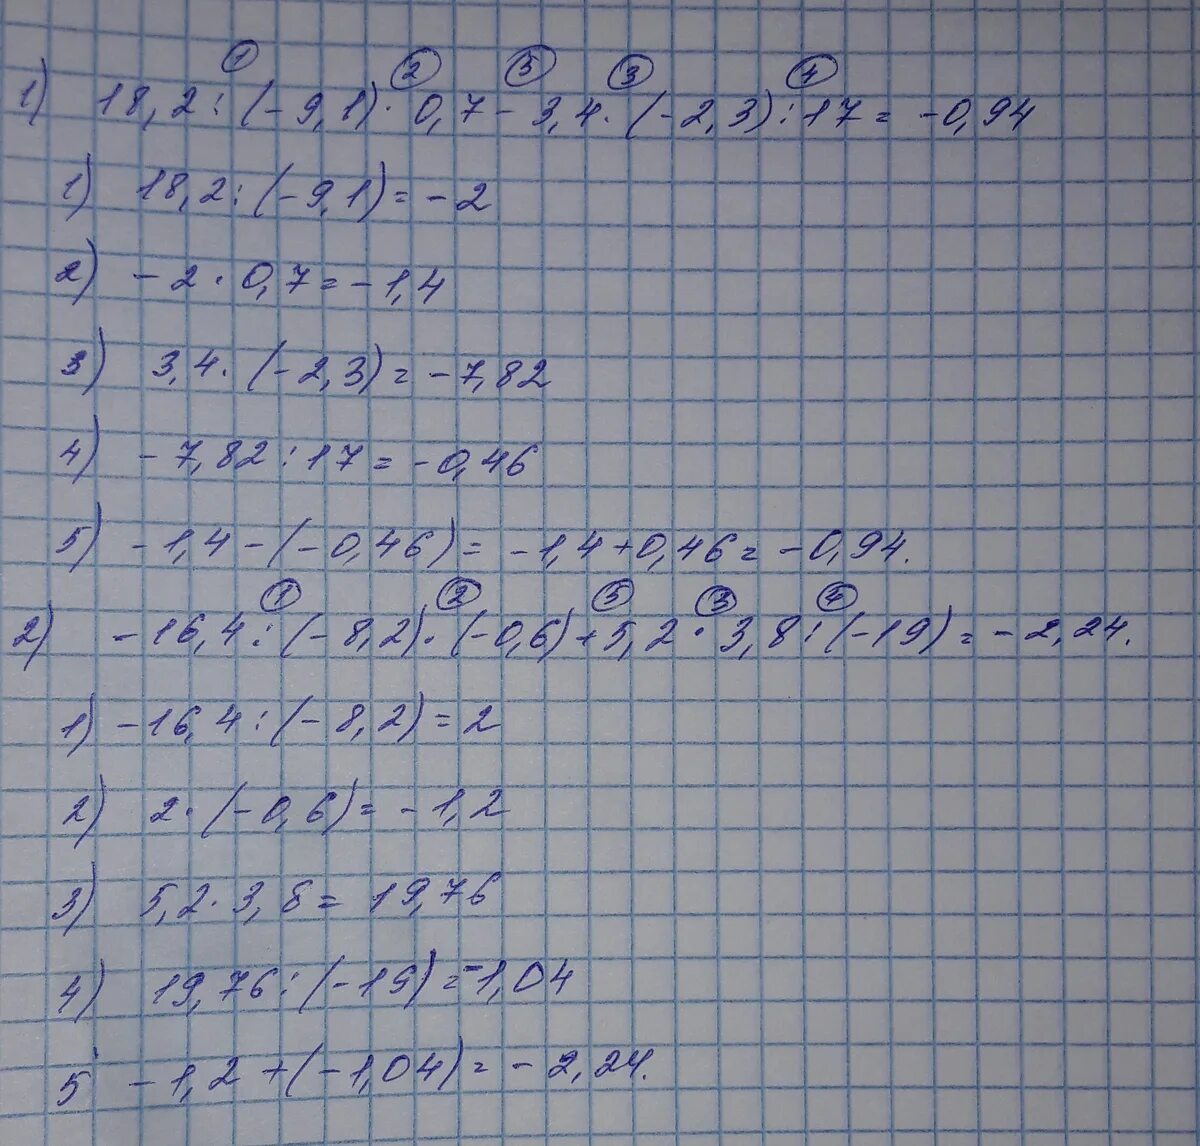 ① ② ⑤ ③ ④
1) 18,2 : (-9,1) · 0,7 - 3,4 · (-2,3) : 17 = -0,94
1) 18,2 : (-9,1) = -2
2) -2 · 0,7 = -1,4
3) 3,4 · (-2,3) = -7,82
4) -7,82 : 17 = -0,46
5) -1,4 - (-0,46) = -1,4 + 0,46 = -0,94.
① ② ⑤ ③ ④
2) -16,4 : (-8,2) · (-0,6) + 5,2 · 3,8 : (-19) = -2,24.
1) -16,4 : (-8,2) = 2
2) 2 · (-0,6) = -1,2
3) 5,2 · 3,8 = 19,76
4) 19,76 : (-19) = -1,04
5 -1,2 + (-1,04) = -2,24.